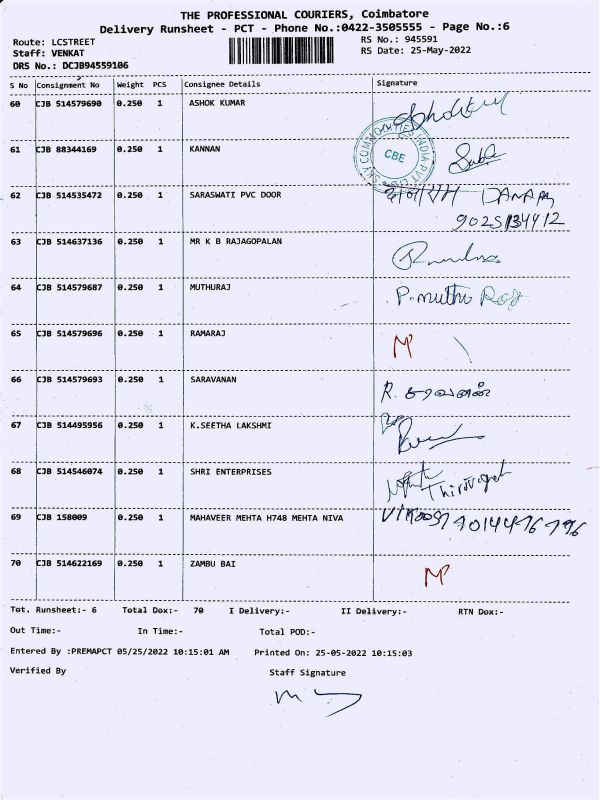 THE PROFESSIONAL COURIERS, Coimbatore
Delivery Runsheet - PCT - Phone No.:0422-3505555 - Page No.:6
Route: LCSTREET RS No.: 945591
Staff: VENKAT RS Date: 25-May-2022
DRS No.: DCJB94559106
S No Consignment No Weight PCS Consignee Details Signature
60 CJB 514579690 0.250 1 ASHOK KUMAR
SKY COMMODITIES INDIA PVT LTD
CBE
61 CJB 88344169 0.250 1 KANNAN
62 CJB 514535472 0.250 1 SARASWATI PVC DOOR
63 CJB 514637136 0.250 1 MR K B RAJAGOPALAN
64 CJB 514579687 0.250 1 MUTHURAJ P. muthu Raj
65 CJB 514579696 0.250 1 RAMARAJ
66 CJB 514579693 0.250 1 SARAVANAN R. சரவணன்
67 CJB 514495956 0.250 1 K.SEETHA LAKSHMI
68 CJB 514546074 0.250 1 SHRI ENTERPRISES
69 CJB 158009 0.250 1 MAHAVEER MEHTA H748 MEHTA NIVA
70 CJB 514622169 0.250 1 ZAMBU BAI
Tot. Runsheet:- 6 Total Dox:- 70 I Delivery:- II Delivery:- RTN Dox:-
Out Time:- In Time:- Total POD:-
Entered By :PREMAPCT 05/25/2022 10:15:01 AM Printed On: 25-05-2022 10:15:03
Verified By Staff Signature